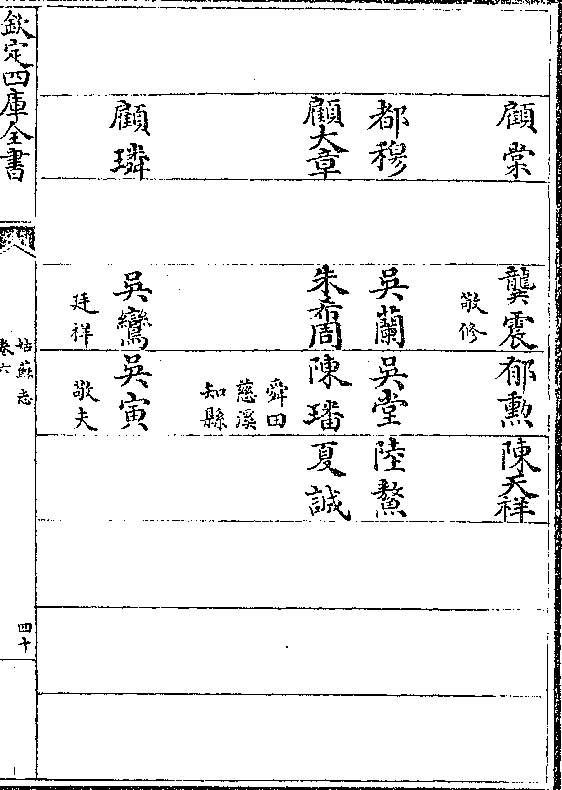 顧棠
龔震
敬修
郁勲
陳天祥
都穆
吳蘭
吳堂
陸鰲
顧大章
朱希周
陳璠
舜田
慈溪
知縣
夏誠
顧璘
吳鸞
廷祥
吳寅
敬夫
欽定四庫全書
姑蘇志
卷六
四十